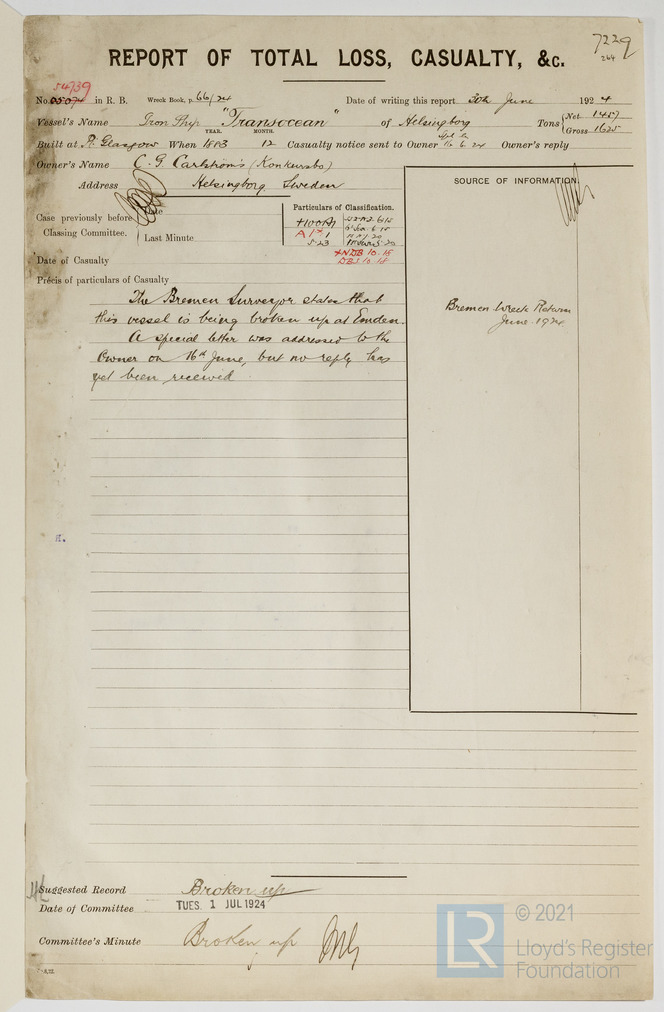 7229
264
REPORT OF TOTAL LOSS, CASUALTY, &c.
54739
No. 05074 in R. B. Wreck Book, p. 66/24 Date of writing this report 30th June 1924
Vessel's Name Iron Ship "Transocean" of Helsingborg Tons { Net 1457
Gross 1625
YEAR. MONTH.
Built at Pt. Glasgow When 1883 12 Casualty notice sent to Owner 16.6.24 Owner's reply
Owner's Name C. G. Carlströms (Konkursbo)
Address Helsingborg Sweden
SOURCE OF INFORMATION.
Case previously before Classing Committee. { Date
Last Minute
Particulars of Classification.
+100A1
A1* 1
5.23
+NDB 10.15
DBS 10.18
Date of Casualty
Précis of particulars of Casualty
The Bremen Surveyor states that
this vessel is being broken up at Emden.
A special letter was addressed to the
Owner on 16th June, but no reply has
yet been received.
Bremen Wreck Return
June 1924
Suggested Record Broken up
Date of Committee TUES. 1 JUL 1924
Committee's Minute Broken up
LR
© 2021
Lloyd's Register
Foundation